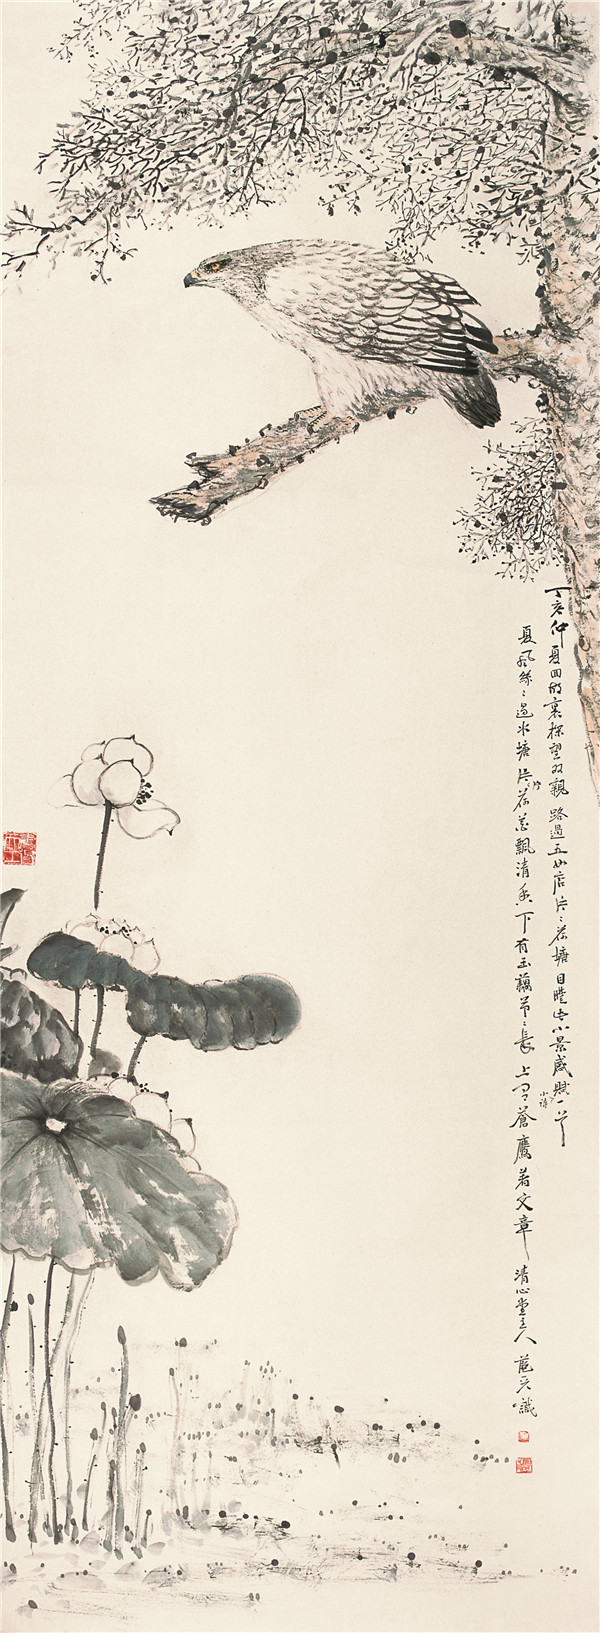 丁亥仲夏回故裏探望双親路過五女店片片荷塘目睹此小景感賦一首
夏風絲絲過水塘片片荷花飄清香下有玉藕節節長上有蒼鷹著文章
小詩
清心堂主人